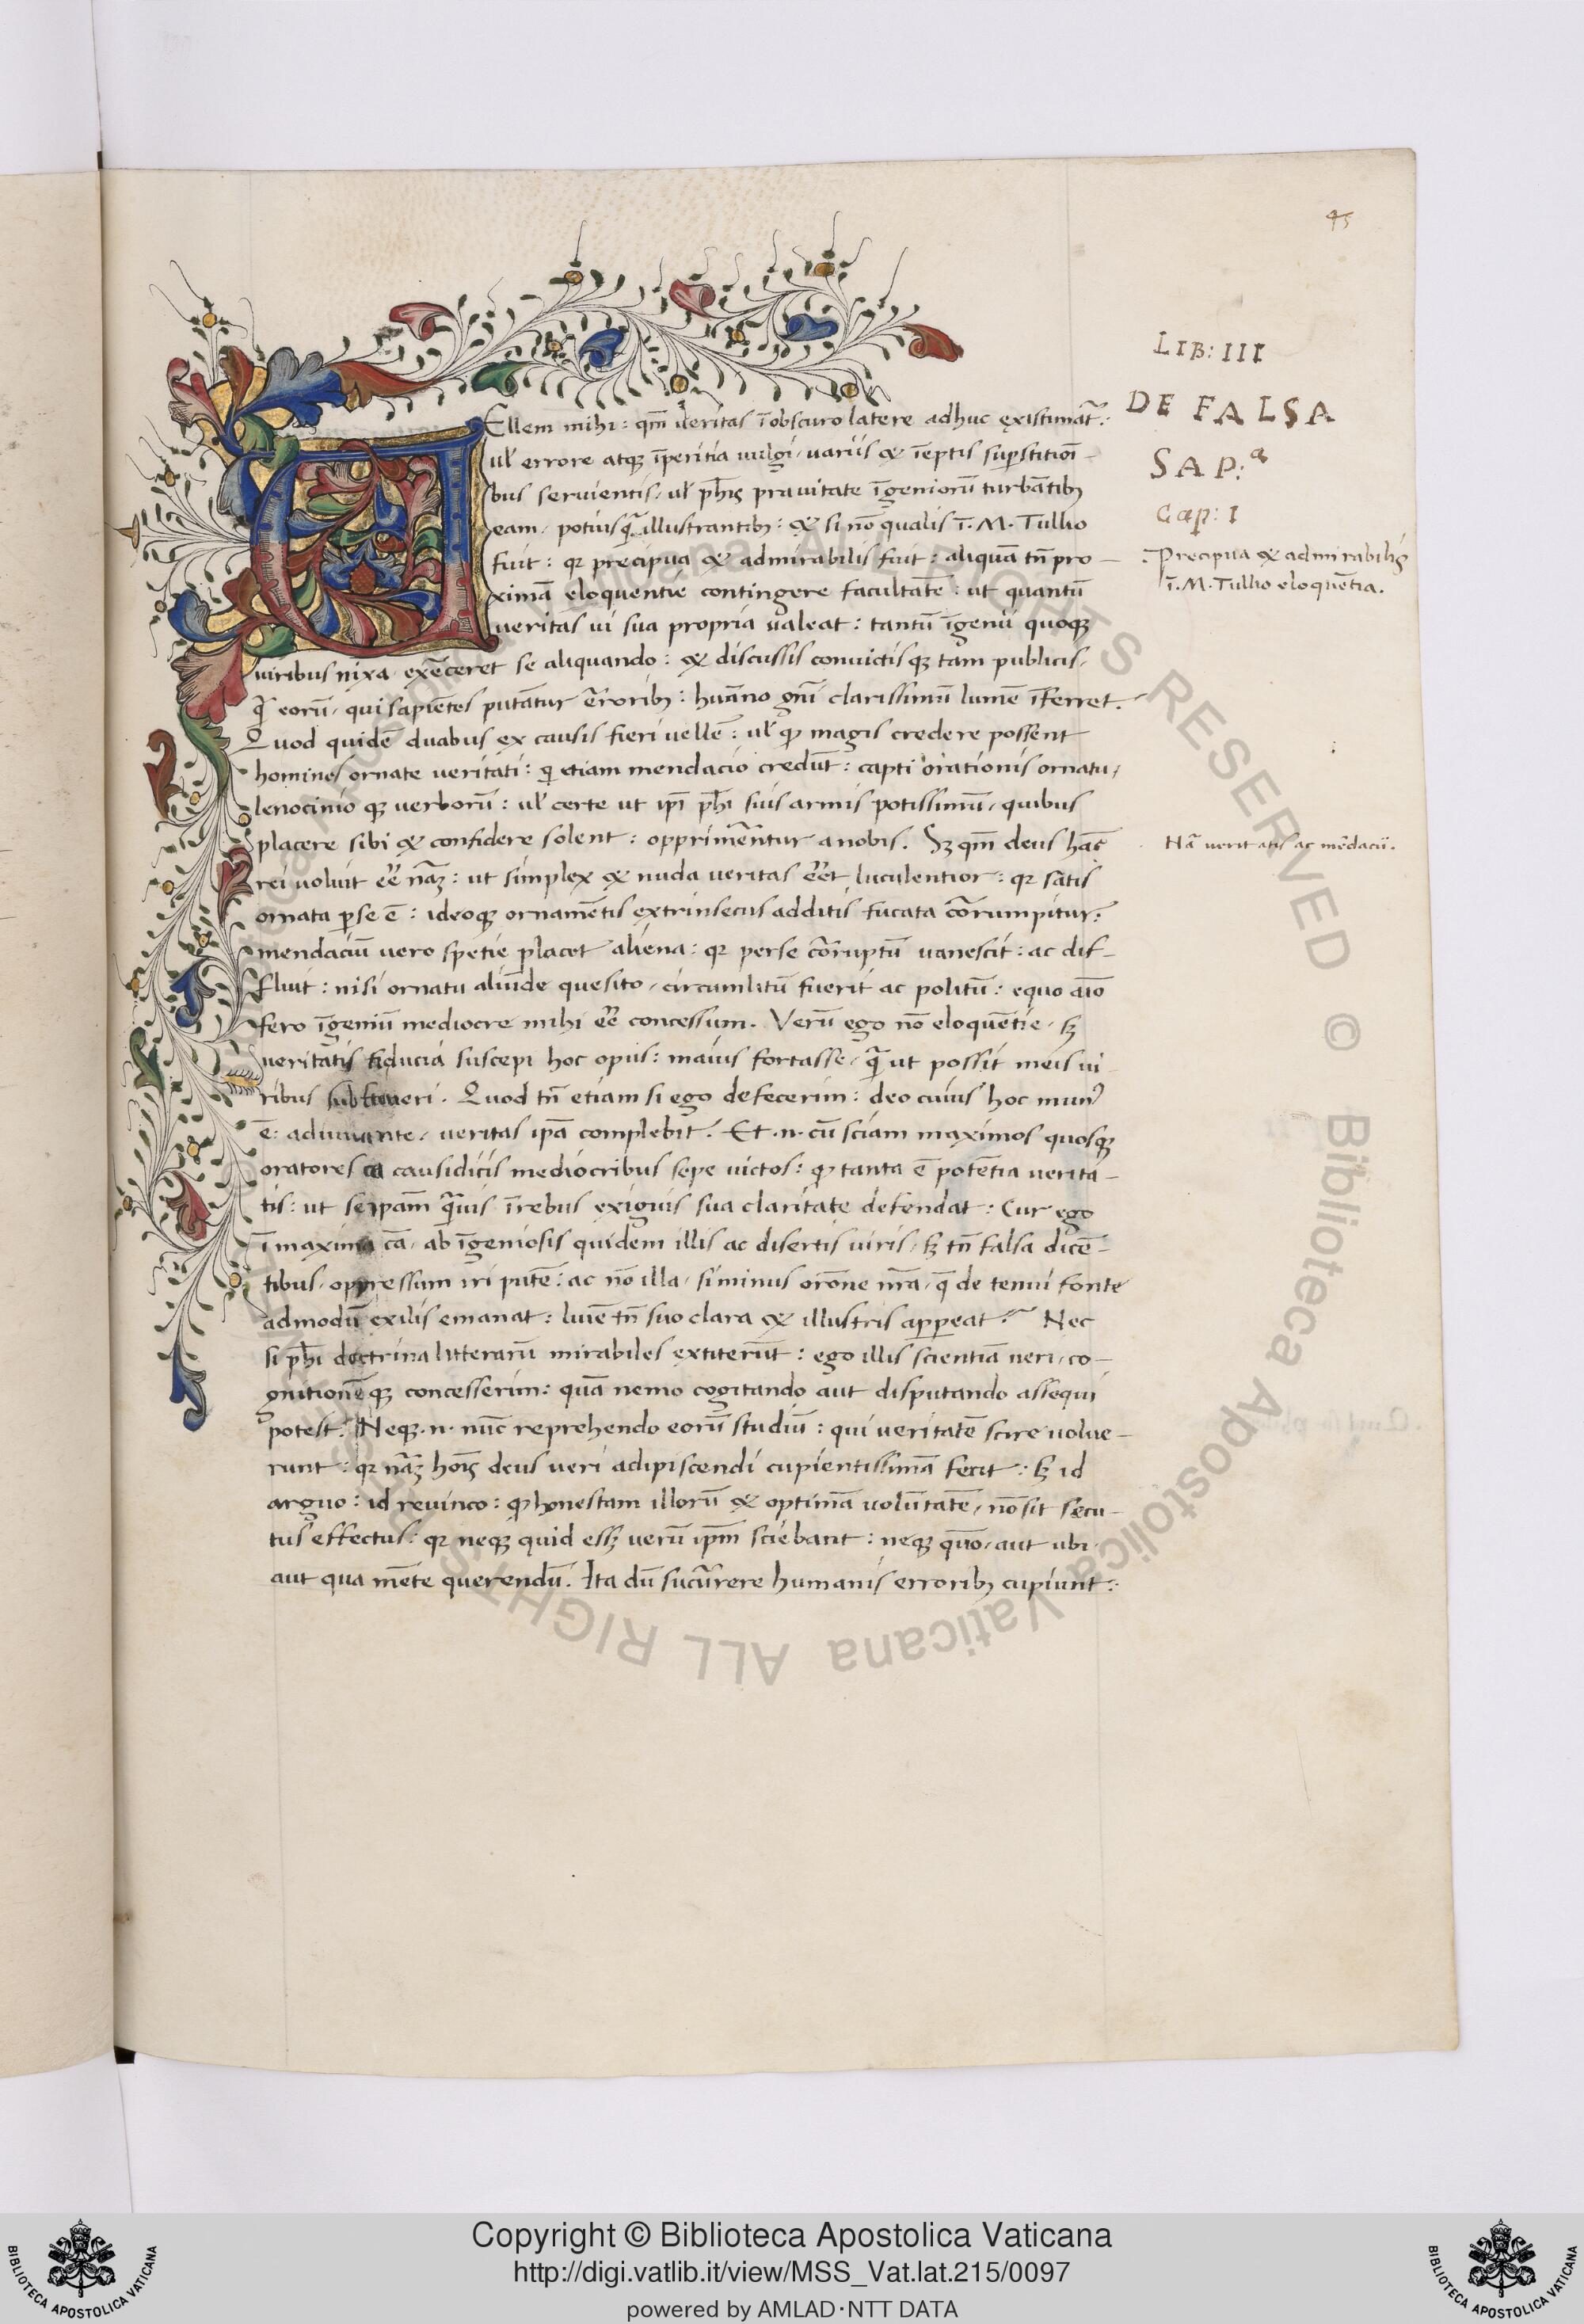 45
LIB: III
DE FALSA
SAP:ª
Cap: I
Ellem mihi: qm̄ veritas ī obscuro latere adhuc existimat̃:
ul̉ errore atqꝫ īperitia vulgi, variis & īeptis sup̄stitioī-
bus servientis, ul̉ ph̄is pravitate īgeniorū turbātibꝫ
eam, potius q̃ illustrantibꝫ: & si nō qualis ī. M. Tullio
fuit: qꝛ precipua & admirabilis fuit: aliquā tn̄ pro-
ximā eloquentie contingere facultatē: ut quantū
veritas vi sua propria valeat: tantū īgenii quoqꝫ
viribus nixa exērceret se aliquando: & discussis convictisqꝫ tam publicis,
q̃ eorū, qui sapiētes putātur ērroribꝫ: huāno gn̄i clarissimū lumē īferret.
Quod quidē duabus ex causis fieri vellē: ul̉ ꝙ magis credere possent
homines ornate veritati: qi etiam mendacio credūt: capti orationis ornatu,
lenocinioqꝫ verborū: ul̉ certe ut ip̄i ph̄i suis armis potissimū, quibus
placere sibi & confidere solent: opprimērentur a nobis. Sꝫ qm̄ deus hāc
rei voluit eē̉ nāꝫ: ut simplex & nuda veritas eē̉t luculentior: qꝛ satis
ornata p̄ se ē: ideoqꝫ ornamētis extrinsecus additis fucata cōrrumpitur:
mendaciū vero spetie placet aliena: qꝛ per se cōrruptū vanescit: ac dif-
fluit: nisi ornatu aliūde quesito, circumlitū fuerit ac politū: equo aīo
fero īgeniū mediocre mihi eē̉ concessum. Verū ego nō eloquētie, sꝫ
veritatis fiducia suscepi hoc opus: maius fortasse, q̃ ut possit meis vi-
ribus sustineri. Quod tn̄ etiam si ego defecerim: deo cuius hoc mun᾽
ē: adiuvante, veritas ip̄a complebit. Et .n. cū sciam maximos quosqꝫ
oratores a causidicis mediocribus sepe victos: ꝙ tanta ē potētia verita-
tis: ut seip̄am q̃uis ī rebus exiguis sua claritate defendat: Cur ego
ī maxima cā, ab īgeniosis quidem illis ac disertis viris, sꝫ tn̄ falsa dicē-
tibus, oppressum iri putē: ac nō illa, si minus orōne nr̄a, q̄ de tenui fonte
admodū exilis emanat: luīe tn̄ suo clara & illustris appareat? Nec
si ph̄i doctrina litterarū mirabiles extiterūt: ego illis scientiā veri, co-
gnitionēqꝫ concesserim: quā nemo cogitando aut disputando assequi
potest. Neqꝫ .n. nūc reprehendo eorū studiū: qui veritatē scire volue-
runt: qꝛ nāꝫ hoīs deus veri adipiscendi cupientissimā fecit: sꝫ id
arguo: id revinco: ꝙ honestam illorū & optimā volūtatē, nō sit secu-
tus effectus: qꝛ neqꝫ quid essꝫ verū ip̄m sciebant: neqꝫ quō, aut ubi,
aut qua mēte querendū. Ita dū sucūrrere humanis erroribꝫ cupiunt:
. Precipua & admirabilis
ī. M. Tullio eloquētia.
. Nā veritatis ac mēdacii.
ALL RIGHTS RESERVED © Biblioteca Apostolica Vaticana
Copyright © Biblioteca Apostolica Vaticana
http://digi.vatlib.it/view/MSS_Vat.lat.215/0097
powered by AMLAD·NTT DATA
BIBLIOTECA APOSTOLICA VATICANA
BIBLIOTECA APOSTOLICA VATICANA